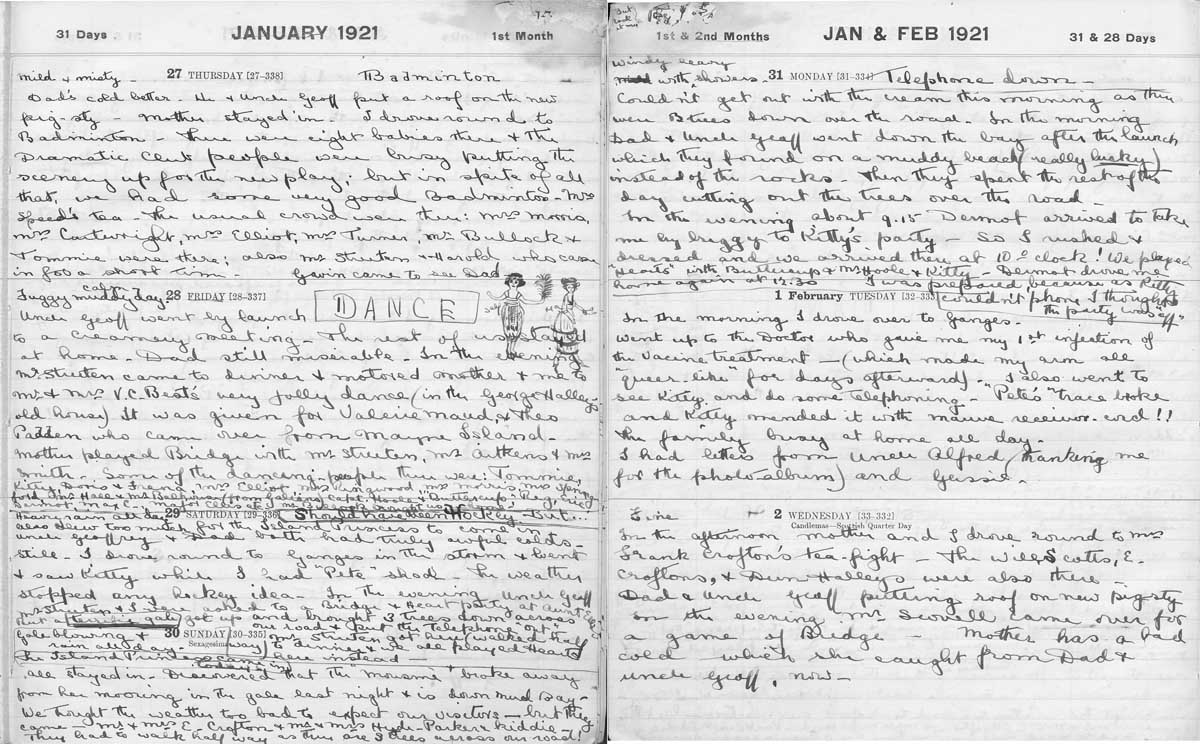 31 Days JANUARY 1921 1st Month
mild & misty - 27 THURSDAY [27-338] Badminton
Dad's cold better - He & Uncle Geoff put a roof on the new
pig-sty - Mother stayed in - I drove round to
Badminton - There were eight babies there & the
Dramatic Club people were busy putting the
scenery up for the new play; but in spite of all
that, we had some very good Badminton - Mrs
Speed's tea - The usual crowd were there: Mrs Morris,
Mrs Cartwright, Mrs Elliot, Mrs Turner, Mr Bullock &
Tommie were there; also Mr Streeten & Harold who came
in for a short time. Gavin came to see Dad
calm
Fuggy muddy day 28 FRIDAY [28-337] DANCE
Uncle Geoff went by launch
to a Creamery meeting - The rest of us stayed
at home - Dad still miserable - In the evening
Mr Streeten came to dinner & motored Mother & me to
Mr & Mrs V.C. Best's very jolly dance (in the George Halley's
old house) It was given for Valerie Maud, & Theo
Padden who came over from Mayne Island -
Mother played Bridge with Mr Streeten, Mr Aitkens & Mrs
Smith - Some of the dancing people there were: Tommie,
Kitty, Doris & Mrs Elliot Mrs Morris
Capt. Hoole & "Buttercup" Reg, Eric
29 SATURDAY [29-336] Should have been Hockey - But...
also blew too much for the Island Princess to come -
Uncle Geoffrey & Dad both had truly awful colds -
still - I drove round to Ganges in the storm & went
& saw Kitty while I had "Pete" shod - The weather
stopped any hockey idea - In the evening Uncle Geoff
Mr Streeten & I were asked to a Bridge & Heart party at
but a terrific gale got up and brought 3 trees down across
our road & put the Telephone out
Gale blowing & 30 SUNDAY [30-335] Mr Streeten got here (walked half
rain all day - Sexagesima way) to dinner & we all played Hearts
The Island Princess came here instead -
Today in
all stayed in - Discovered that the broke away
from her mooring in the gale last night & is down Mud Bay -
We thought the weather too bad to expect our visitors - but they
came - Mr & Mrs E. Crofton & Mr & Mrs Hyde-Parker & kiddie -
They had to walk half way as there are 3 trees across our road!
1st & 2nd Months JAN & FEB 1921 31 & 28 Days
Windy
with showers - 31 MONDAY [31-334] Telephone down -
Couldn't get out with the cream this morning as there
were 3 trees down over the road. In the morning
Dad & Uncle Geoff went down the bay after the launch
which they found on a muddy beach (really lucky)
instead of the rocks. Then they spent the rest of the
day cutting out the trees over the road -
In the evening about 9.15 Dermot arrived to take
me by buggy to Kitty's party - So I rushed &
dressed and we arrived there at 10 o'clock! We played
"Hearts" with Buttercup & Mr Hoole & Kitty - Dermot drove me
home again at 12.30 I was prepared because as Kitty
1 February TUESDAY [32-333] couldn't phone I thought
the party was "off"
In the morning I drove over to Ganges.
Went up to the Doctor who gave me my 1st injection of
the Vaccine treatment - (which made my arm all
"queer-like" for days afterward) - I also went to
see Kitty and do some telephoning - "Pete's" trace broke
and Kitty mended it with mauve receiver-cord!!
The family busy at home all day -
I had letters from Uncle Alfred (thanking me
for the photo-album) and Gessie.
Fine 2 WEDNESDAY [33-332]
Candlemas—Scottish Quarter Day
In the afternoon Mother and I drove round to Mrs
Frank Crofton's tea-fight - The Wilfs Scotts, E.
Croftons, & Dunn Halleys were also there -
Dad & Uncle Geoff putting roof on new pig-sty
In the evening Mr Scovell came over for
a game of Bridge - Mother has a bad
cold - which she caught from Dad &
Uncle Geoff, now -